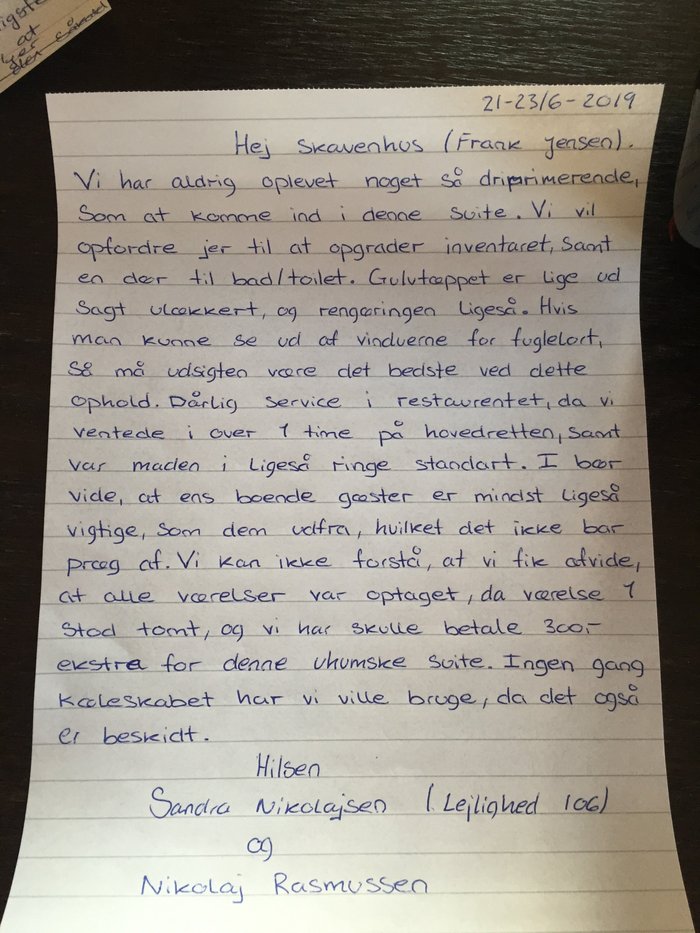 igste
at
jer
den
21-23/6-2019
Hej Skavenhus (Frank Jensen).
Vi har aldrig oplevet noget så driprimerende,
Som at komme ind i denne suite. Vi vil
opfordre jer til at opgrader inventaret, Samt
en dør til bad/toilet. Gulvtæppet er lige ud
Sagt ulækkert, og rengøringen ligeså. Hvis
man kunne se ud af vinduerne for fuglelort,
Så må udsigten være det bedste ved dette
ophold. Dårlig service i restaurentet, da vi
ventede i over 1 time på hovedretten, Samt
var maden i Ligeså ringe standart. I bør
vide, at ens boende gæster er mindst Ligeså
vigtige, Som dem udfra, hvilket det ikke bar
præg af. Vi kan ikke forstå, at vi fik afvide,
at alle værelser var optaget, da værelse 1
Stod tomt, og vi har skulle betale 300,-
ekstra for denne uhumske suite. Ingen gang
Køleskabet har vi ville bruge, da det også
er beskidt.
Hilsen
Sandra Nikolajsen (Lejlighed 106)
og
Nikolaj Rasmussen